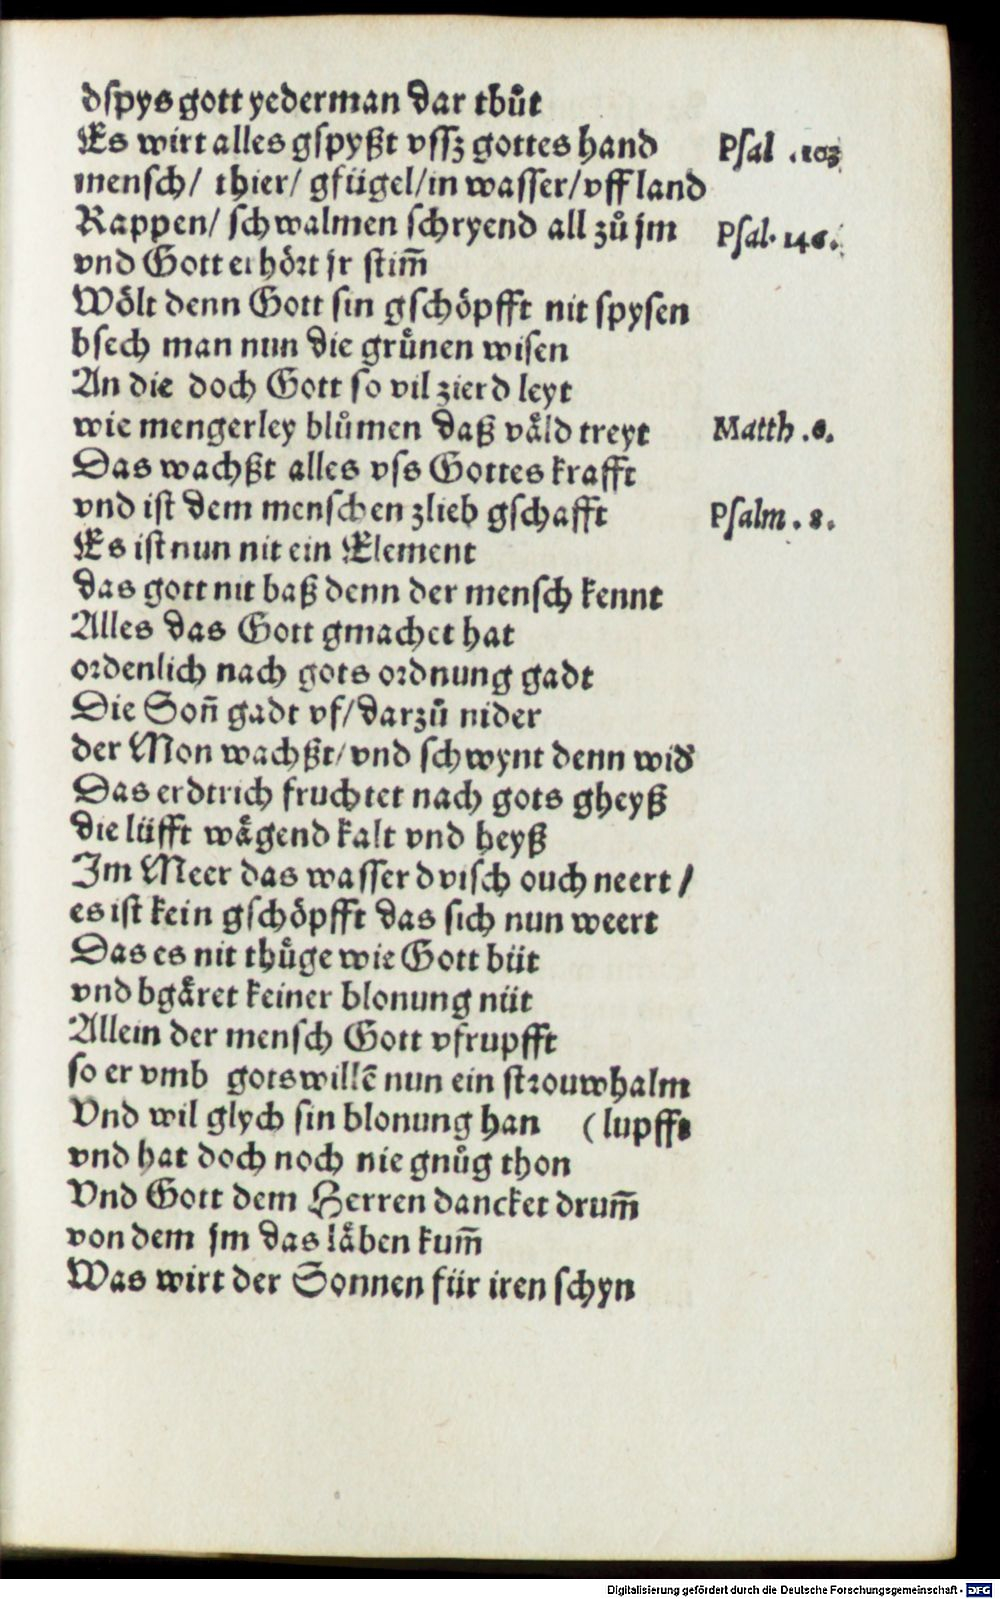 dſpys gott yederman dar thuͦt
Es wirt alles gſpyßt vſſz gottes hand
Pſal .103
menſch/ thier/ gfügel/in waſſer/vff land
Rappen/ ſchwalmen ſchryend all zuͦ jm
Pſal. 146.
vnd Gott erhoͤrt jr ſtim̃
Woͤlt denn Gott ſin gſchoͤpfft nit ſpyſen
bſech man nun die gruͤnen wiſen
An die doch Gott ſo vil zierd leyt
wie mengerley bluͦmen daß vaͤld treyt
Matth .6.
Das wachßt alles vſs Gottes krafft
vnd iſt dem menſchen zlieb gſchafft
Pſalm . 8.
Es iſt nun nit ein Element
das gott nit baß denn der menſch kennt
Alles das Gott gmachet hat
ordenlich nach gots ordnung gadt
Die Son̄ gadt vf/darzuͦ nider
der Mon wachßt/vnd ſchwynt denn wid̾
Das erdtrich fruchtet nach gots gheyß
die lüfft waͤgend kalt vnd heyß
Im Meer das waſſer dviſch ouch neert /
es iſt kein gſchoͤpfft das ſich nun weert
Das es nit thuͤge wie Gott büt
vnd bgaͤret keiner blonung nüt
Allein der menſch Gott vfrupfft
ſo er vmb gotswillē nun ein ſtrouwhalm
Vnd wil glych ſin blonung han (lupfft
vnd hat doch noch nie gnuͦg thon
Vnd Gott dem Herren dancket drum̄
von dem jm das laͤben kum̄
Was wirt der Sonnen für iren ſchyn
Digitalisierung gefördert durch die Deutsche Forschungsgemeinschaft - DFG